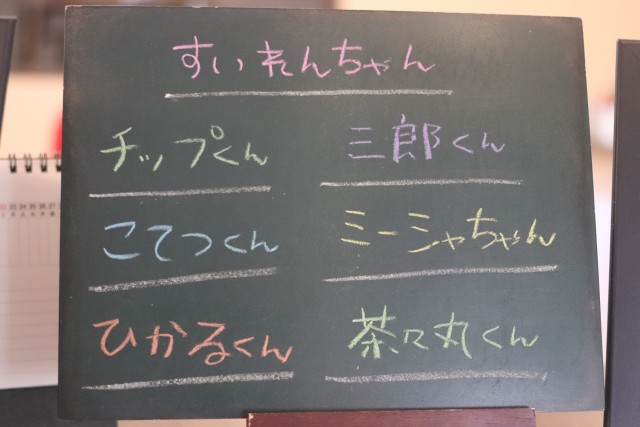 すいれんちゃん
チップくん
三郎くん
こてつくん
ミーシャちゃん
ひかるくん
茶々丸くん